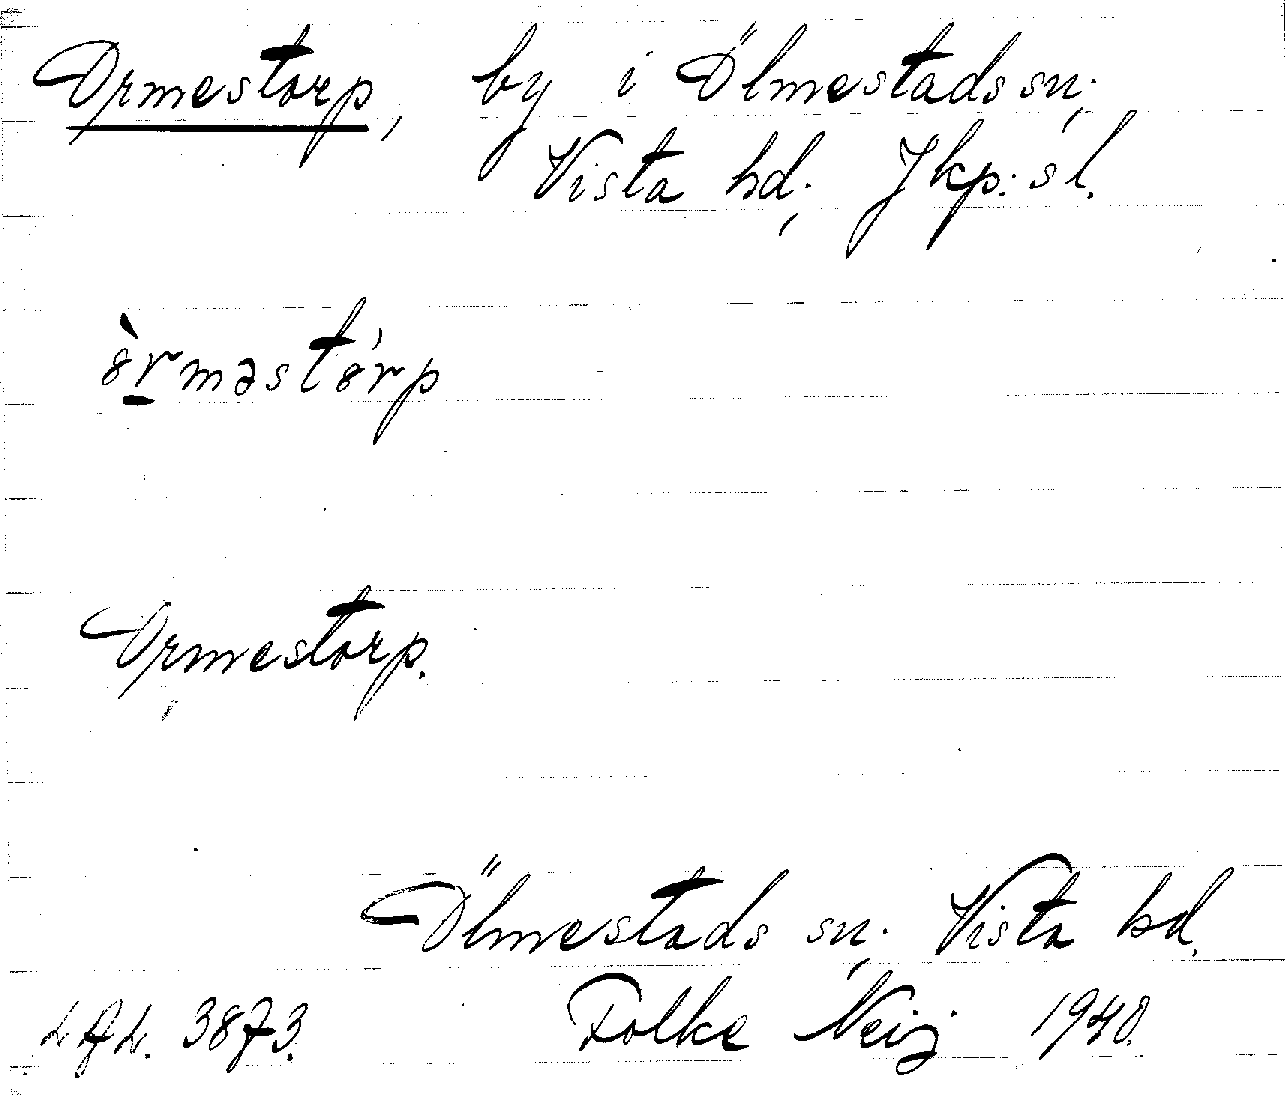 Ormestorp, by i Ölmestads sn;
Vista hd; Jkp:s l.
òrməstórp
Ormestorp.
Ölmestads sn; Vista hd.
3873. Folke Neij 1940.